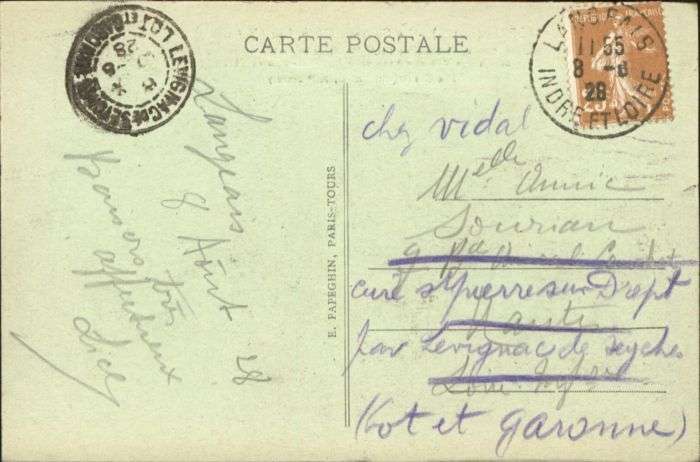 CARTE POSTALE
LEVIGNAC DE SEYCHES
LOT ET GARONNE
28
LANGEAIS
11 55
8 - 8
28
INDRE ET LOIRE
25
Langeais
8 Août 28
Baisers très
affectueux
E. PAPEGHIN, PARIS-TOURS
chez Vidal
Melle Annic
Sourian
9 Bd
curé St Pierre sur Dropt
Nantes
par Levignac de Seyches
Loire Infre
(Lot et Garonne)